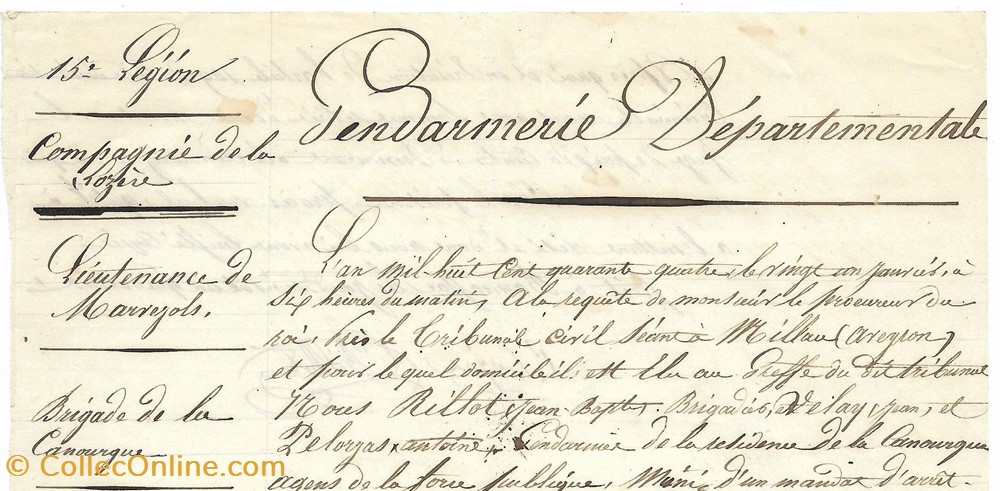 15e Légion
Compagnie de la
Lozère
Lieutenance de
Marvejols.
Brigade de la
Canourgue
Gendarmerie Départementale
L'an mil-huit cent quarante quatre, le vingt un janvier, à
six heures du matin, A la requête de monsieur le procureur du
roi, près le Tribunal civil séant à Millau (Aveyron)
et pour le quel domicile il est Elu au Greffe du dit tribunal
Nous Rillot, jean Bapte. Brigadier, Velay, jean, et
Pelorjas, antoine, Gendarmes de la residence de la Canourgue
agens de la force publique, Muni d'un mandat d'arrêt
© CollecOnline.com